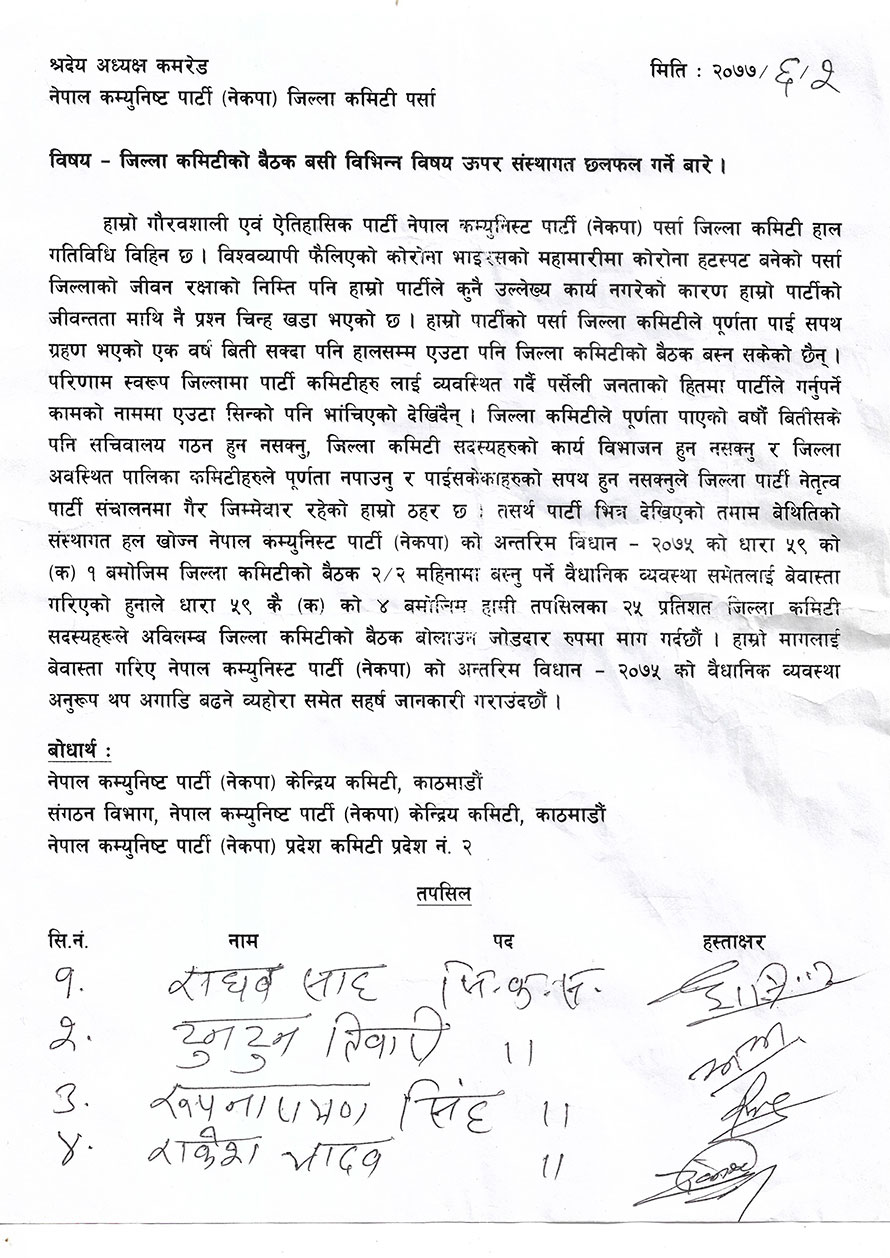 श्रदेय अध्यक्ष कमरेड
मिति : २०७७/६/२
नेपाल कम्युनिष्ट पार्टी (नेकपा) जिल्ला कमिटी पर्सा
विषय – जिल्ला कमिटीको बैठक बसी विभिन्न विषय ऊपर संस्थागत छलफल गर्ने बारे ।
हाम्रो गौरवशाली एवं ऐतिहासिक पार्टी नेपाल कम्युनिस्ट पार्टी (नेकपा) पर्सा जिल्ला कमिटी हाल
गतिविधि विहिन छ । विश्वव्यापी फैलिएको कोरोना भाइरसको महामारीमा कोरोना हटस्पट बनेको पर्सा
जिल्लाको जीवन रक्षाको निम्ति पनि हाम्रो पार्टीले कुनै उल्लेख्य कार्य नगरेको कारण हाम्रो पार्टीको
जीवन्तता माथि नै प्रश्न चिन्ह खडा भएको छ । हाम्रो पार्टीको पर्सा जिल्ला कमिटीले पूर्णता पाई सपथ
ग्रहण भएको एक वर्ष बिती सक्दा पनि हालसम्म एउटा पनि जिल्ला कमिटीको बैठक बस्न सकेको छैन् ।
परिणाम स्वरूप जिल्लामा पार्टी कमिटीहरु लाई व्यवस्थित गर्दै पर्सेली जनताको हितमा पार्टीले गर्नुपर्ने
कामको नाममा एउटा सिन्को पनि भांचिएको देखिदैन् । जिल्ला कमिटीले पूर्णता पाएको वर्षौं बितीसके
पनि सचिवालय गठन हुन नसक्नु, जिल्ला कमिटी सदस्यहरुको कार्य विभाजन हुन नसक्नु र जिल्ला
अवस्थित पालिका कमिटीहरुले पूर्णता नपाउनु र पाईसकेकाहरुको सपथ हुन नसक्नुले जिल्ला पार्टी नेतृत्व
पार्टी संचालनमा गैर जिम्मेवार रहेको हाम्रो ठहर छ । तसर्थ पार्टी भित्र देखिएको तमाम बेथितिको
संस्थागत हल खोज्न नेपाल कम्युनिस्ट पार्टी (नेकपा) को अन्तरिम विधान – २०७५ को धारा ५९ को
(क) १ बमोजिम जिल्ला कमिटीको बैठक २/२ महिनामा बस्नु पर्ने वैधानिक व्यवस्था समेतलाई बेवास्ता
गरिएको हुनाले धारा ५९ कै (क) को ४ बमोजिम हामी तपसिलका २५ प्रतिशत जिल्ला कमिटी
सदस्यहरूले अविलम्ब जिल्ला कमिटीको बैठक बोलाउन जोडदार रुपमा माग गर्दछौं । हाम्रो मागलाई
बेवास्ता गरिए नेपाल कम्युनिस्ट पार्टी (नेकपा) को अन्तरिम विधान – २०७५ को वैधानिक व्यवस्था
अनुरूप थप अगाडि बढने व्यहोरा समेत सहर्ष जानकारी गराउंदछौं ।
बोधार्थ :
नेपाल कम्युनिष्ट पार्टी (नेकपा) केन्द्रिय कमिटी, काठमाडौं
संगठन विभाग, नेपाल कम्युनिष्ट पार्टी (नेकपा) केन्द्रिय कमिटी, काठमाडौं
नेपाल कम्युनिष्ट पार्टी (नेकपा) प्रदेश कमिटी प्रदेश नं. २
तपसिल
सि.नं. नाम पद हस्ताक्षर
१. राघव साह जि.क.स.
२. टुनटुन तिवारी ।।
३. रूपनारायण सिंह ।।
४. राकेश यादव ।।